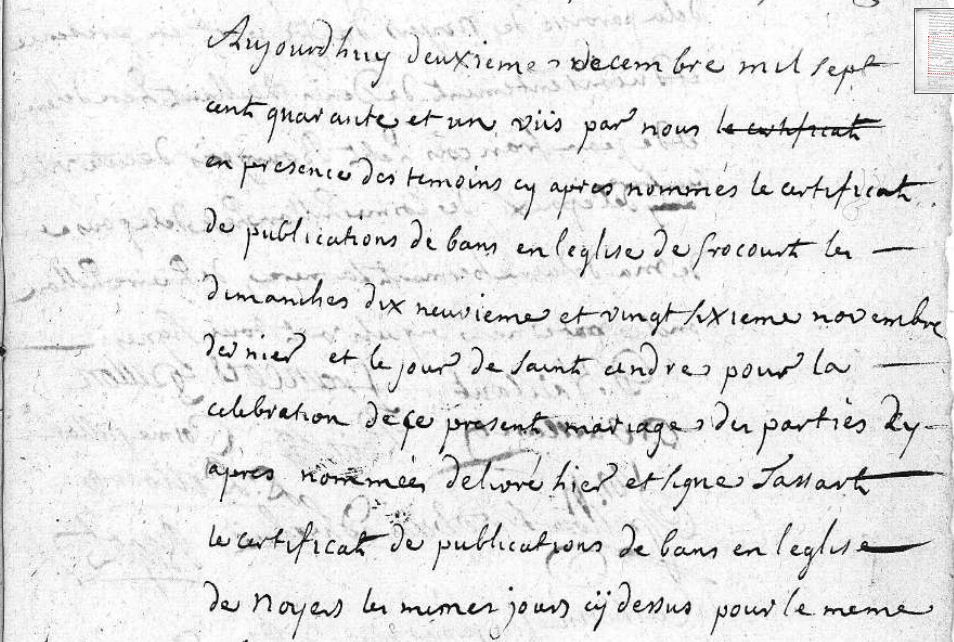 Aujourdhuy deuxieme decembre mil sept
cent quarante et un viis par nous le certificat
en presence des temoins cy apres nommés le certificat
de publications de bans en leglise de frocourt les
dimanches dix neuvieme et vingt sixieme novembre
dernier et le jour de saint andre pour la
celebration de ce present mariage des parties cy
apres nommées delivré hier et signe Tassart
le certificat de publications de bans en leglise
de Noyers les memes jours cy dessus pour le meme